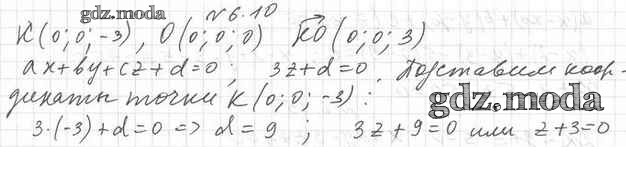 gdz.moda
№6.10
K(0;0;-3), O(0;0;0) KO(0;0;3)
ax+by+cz+d=0; 3z+d=0. Подставим коор-
динаты точки K(0;0;-3):
gdz.moda
3·(-3)+d=0 => d=9 ; 3z+9=0 или z+3=0